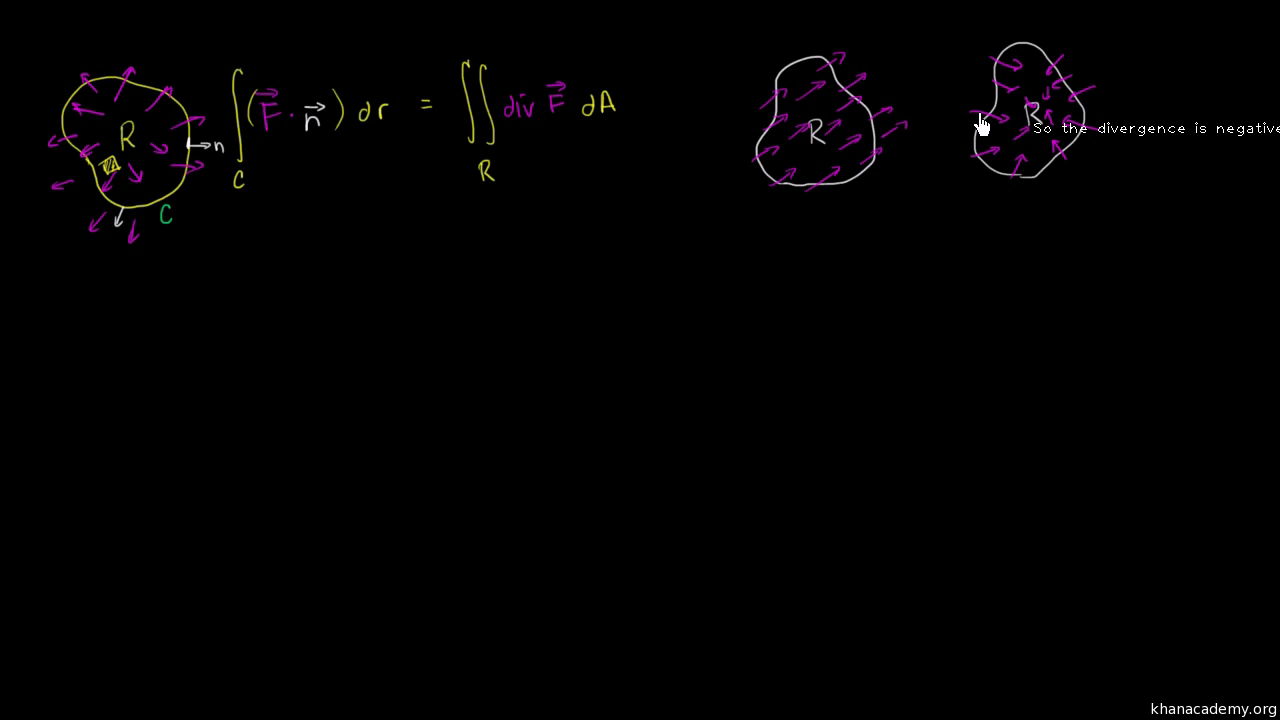 R
n
C
∫_C (F⃗ · n⃗) dr = ∬_R div F⃗ dA
R
R
So the divergence is negative
khanacademy.org